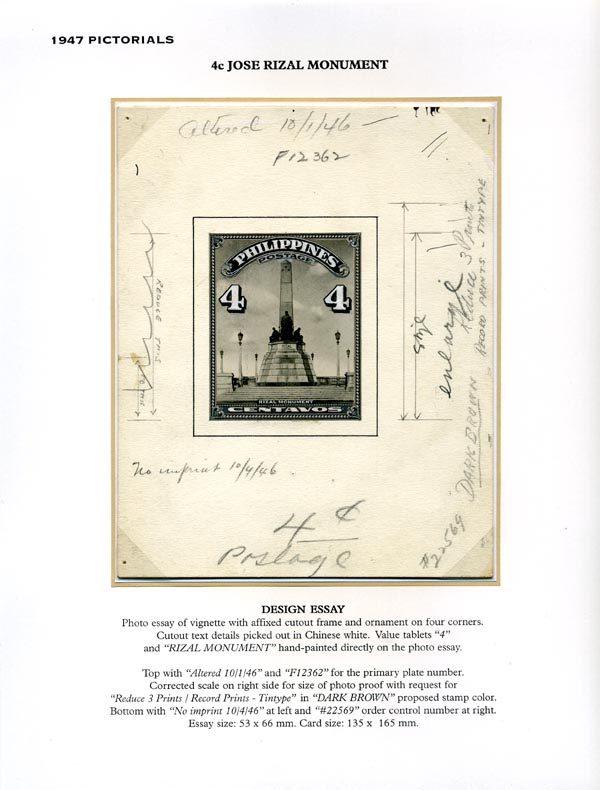 1947 PICTORIALS
4c JOSE RIZAL MONUMENT
Altered 10/1/46 —
F12362
PHILIPPINES
POSTAGE
4 4
RIZAL MONUMENT
CENTAVOS
REDUCE THIS
enlarge
Reduce 3 Prints
RECORD PRINTS - TINTYPE
DARK BROWN
#22569
No imprint 10/4/46
4¢
Postage
DESIGN ESSAY
Photo essay of vignette with affixed cutout frame and ornament on four corners.
Cutout text details picked out in Chinese white. Value tablets “4”
and “RIZAL MONUMENT” hand-painted directly on the photo essay.
Top with “Altered 10/1/46” and “F12362” for the primary plate number.
Corrected scale on right side for size of photo proof with request for
“Reduce 3 Prints / Record Prints - Tintype” in “DARK BROWN” proposed stamp color.
Bottom with “No imprint 10/4/46” at left and “#22569” order control number at right.
Essay size: 53 x 66 mm. Card size: 135 x 165 mm.